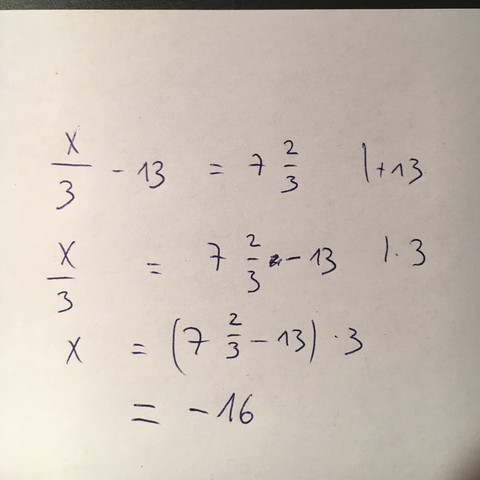 x/3 - 13 = 7 2/3 | +13
x/3 = 7 2/3 - 13 | · 3
x = (7 2/3 - 13) · 3
= -16